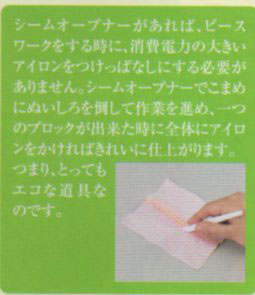 シームオープナーがあれば、ピース
ワークをする時に、消費電力の大きい
アイロンをつけっぱなしにする必要が
ありません。シームオープナーでこまめ
にぬいしろを倒して作業を進め、一つ
のブロックが出来た時に全体にアイロ
ンをかければきれいに仕上がります。
つまり、とっても
エコな道具な
のです。